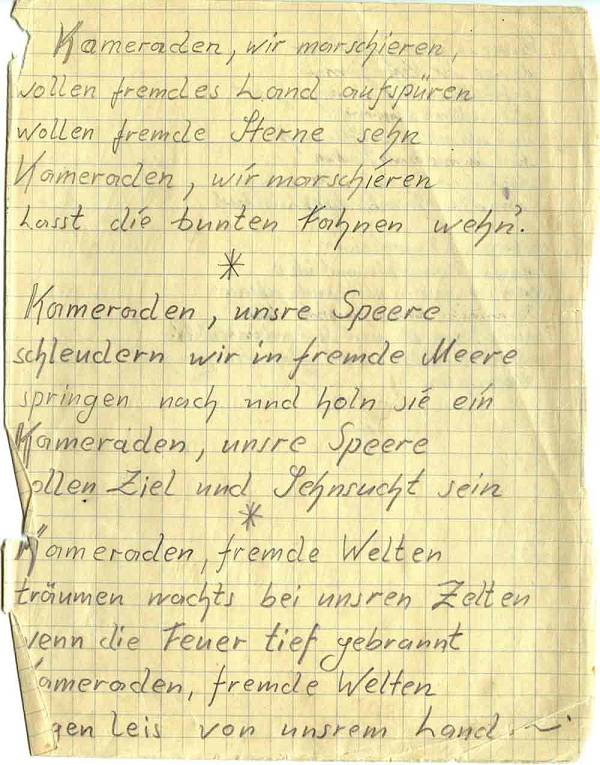 Kameraden, wir marschieren,
wollen fremdes Land aufspüren
wollen fremde Sterne sehn
Kameraden, wir marschieren
Lasst die bunten Fahnen wehn.
*
Kameraden, unsre Speere
schleudern wir in fremde Meere
springen nach und holn sie ein
Kameraden, unsre Speere
ollen Ziel und Sehnsucht sein
*
Kameraden, fremde Welten
träumen nachts bei unsren Zelten
wenn die Feuer tief gebrannt
Kameraden, fremde Welten
gen leis von unsrem Land.